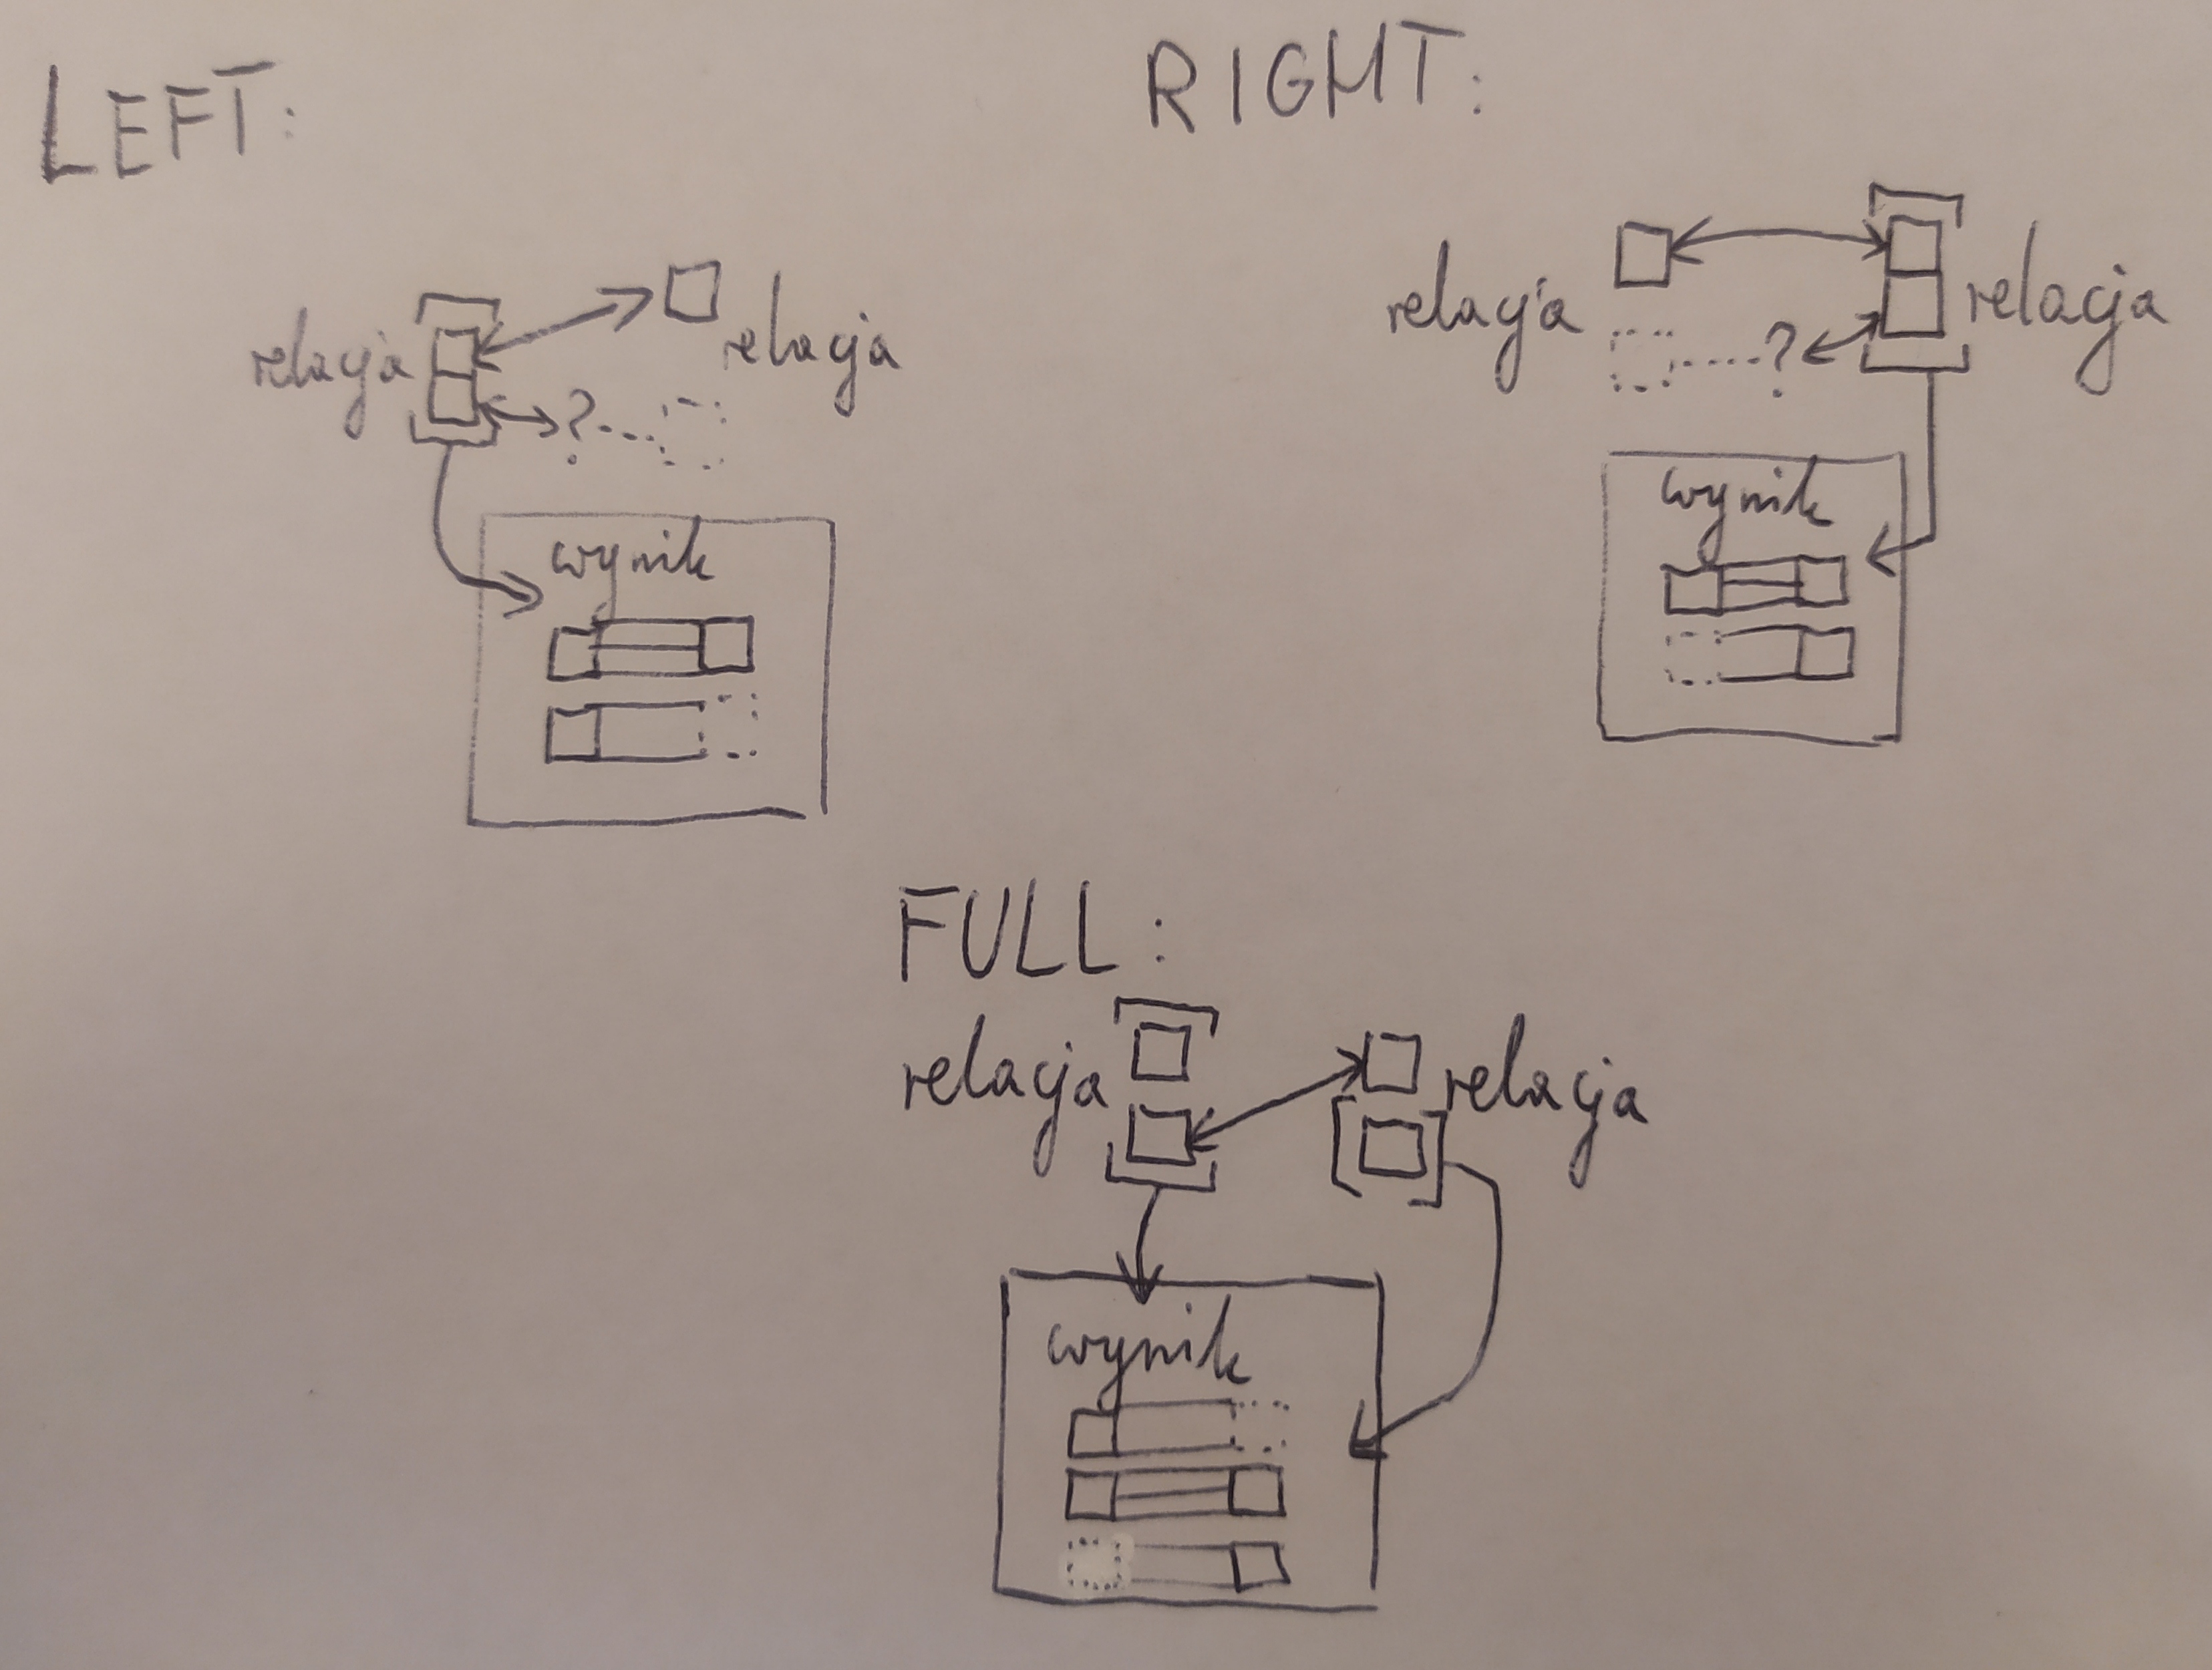 LEFT:
relacja
relacja
?
wynik
RIGHT:
relacja
relacja
?
wynik
FULL:
relacja
relacja
wynik